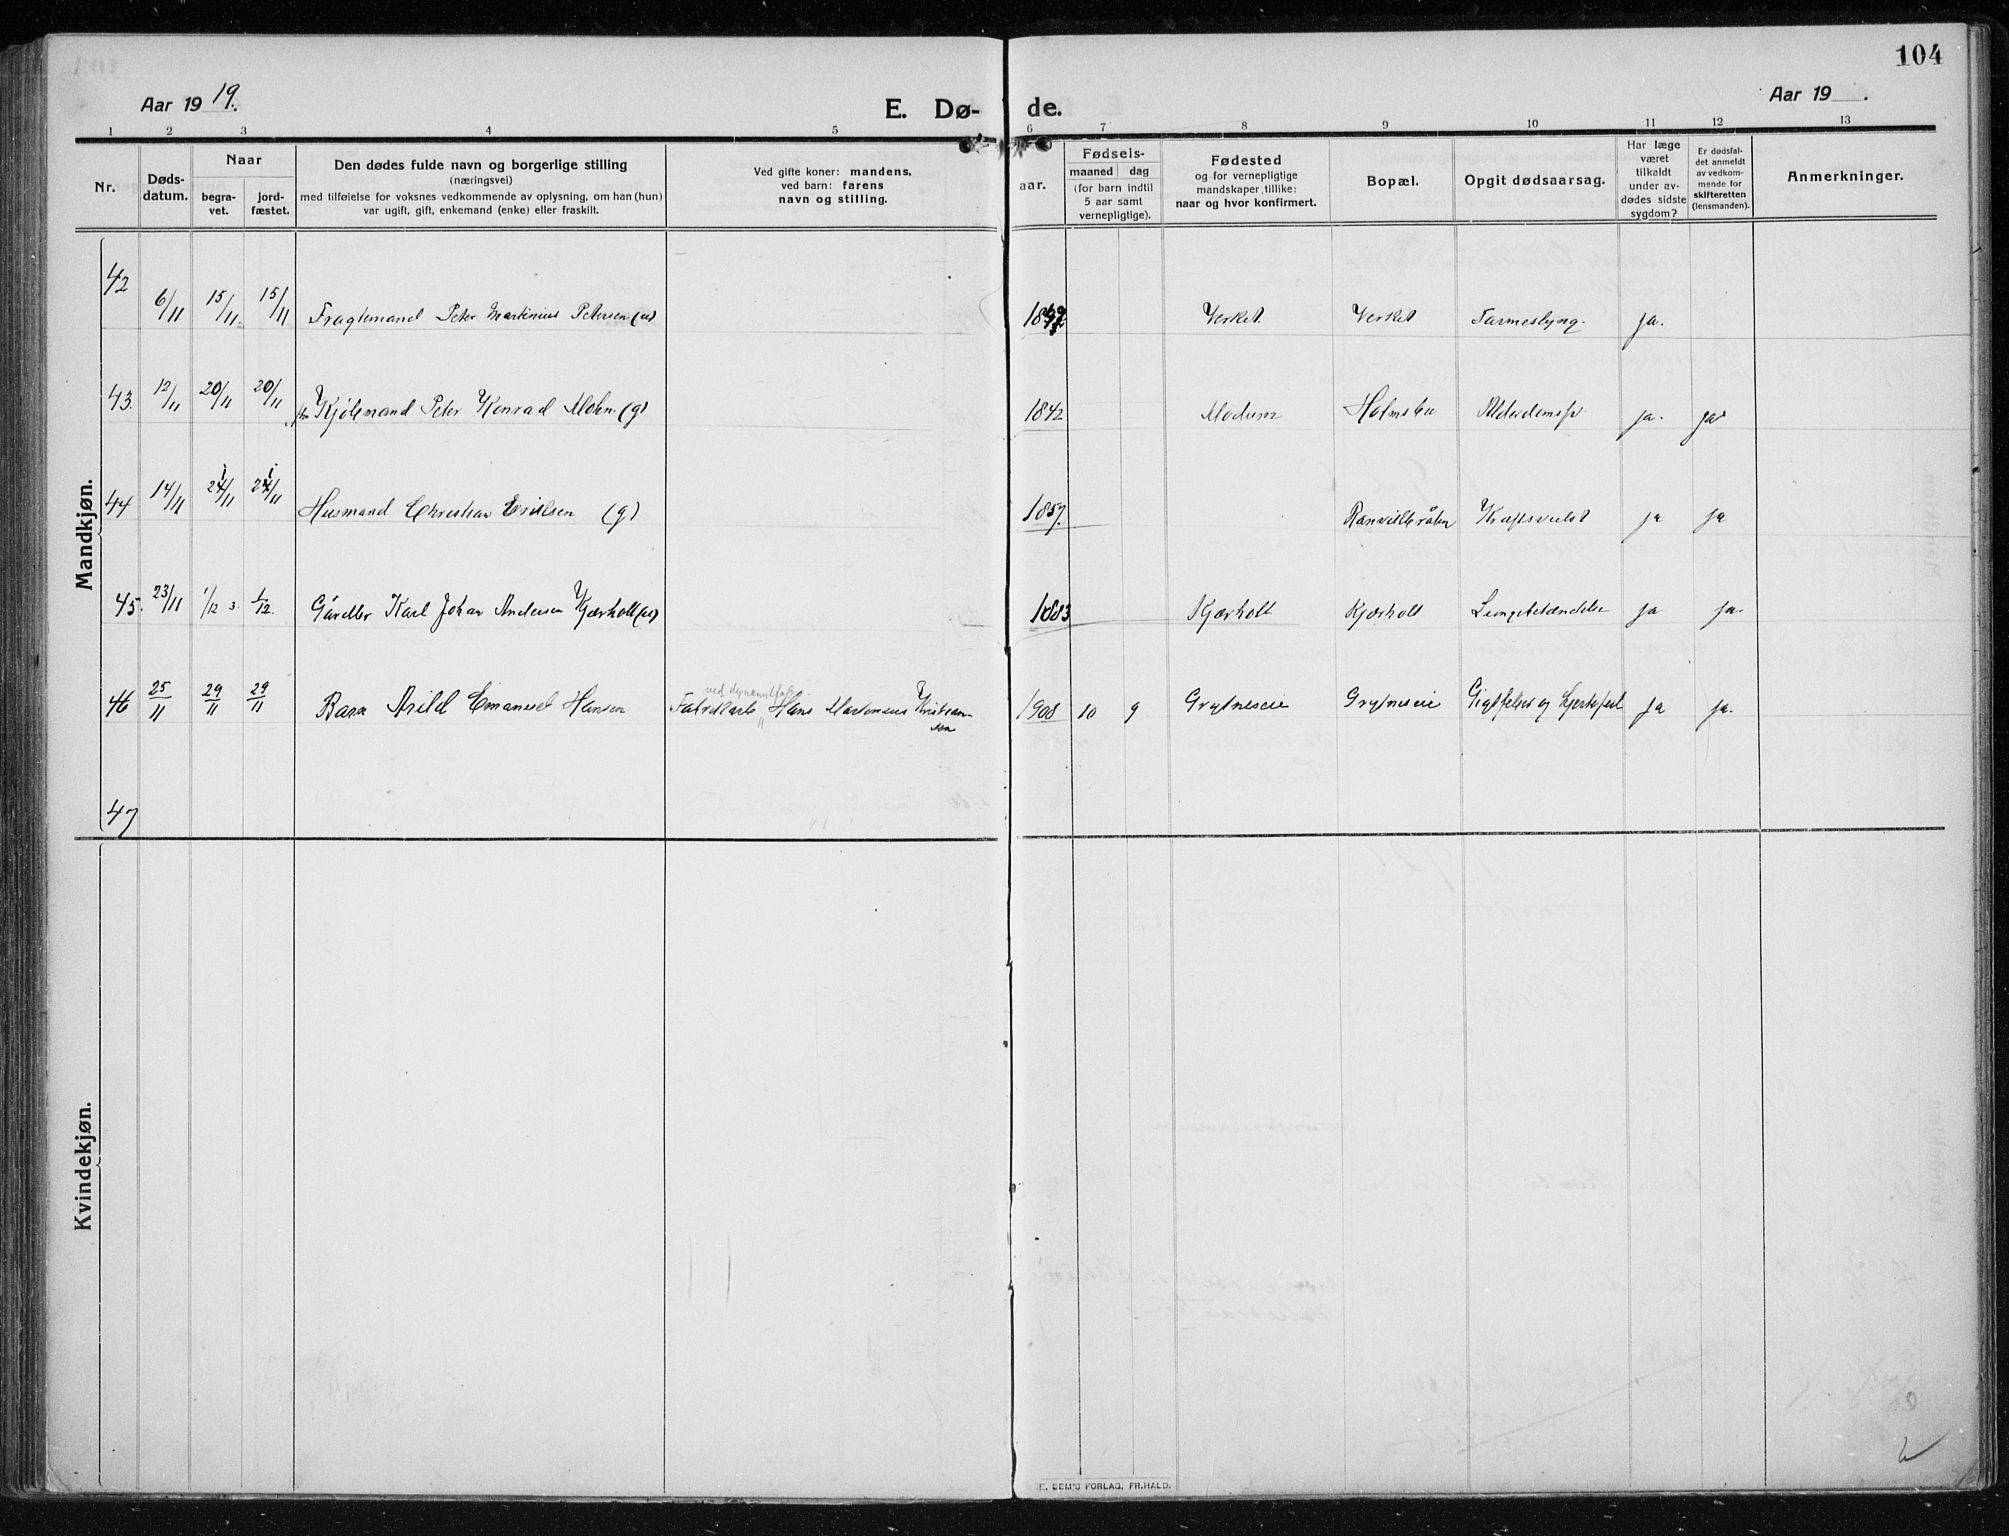 104
Aar 19 19.
E. Dø- de.
Aar 19 .
1 2 3 4 5 6 7 8 9 10 11 12 13
Nr.
Døds-
datum.
Naar
begra-
vet.
jord-
fæstet.
Den dødes fulde navn og borgerlige stilling
(næringsvei)
med tilføielse for voksnes vedkommende av oplysning, om han (hun)
var ugift, gift, enkemand (enke) eller fraskilt.
Ved gifte koner: mandens,
ved barn: farens
navn og stilling.
aar.
Fødsels-
maaned dag
(for barn indtil
5 aar samt
vernepligtige).
Fødested
og for vernepligtige
mandskaper tillike:
naar og hvor konfirmert.
Bopæl.
Opgit dødsaarsag.
Har læge
været
tilkaldt
under av-
dødes sidste
sygdom?
Er dødsfal-
det anmeldt
av vedkom-
mende for
skifteretten
(lensmanden).
Anmerkninger.
Mandkjøn.
42 6/11 15/11 15/11 Fragtemand Peter Martinius Petersen (u) Verket Verket Tarmeslyng. ja.
43. 12/11 20/11 20/11 Kjøbmand Peter Konrad Mohn (g) 1842 Modum Holmsbu ja. ja
44 14/11 Husmand Christian Eriksen (g) 1857. Kræftsvulst ja ja
45. 23/11 1/12 1/12. Karl Johan Andersen Kjærholt (u) 1883 Kjærholt Kjærholt Lungebetændelse ja ja.
46 25/11 29/11 29/11 Barn Arild Emanuel Hansen Hans Martinius Kristian-
sen 1908 10 9 Grytneseie Grytneseie Gigtfeber og hjertefeil ja ja.
47
Kvindekjøn.
E. SEM'S FORLAG, FR.HALD.